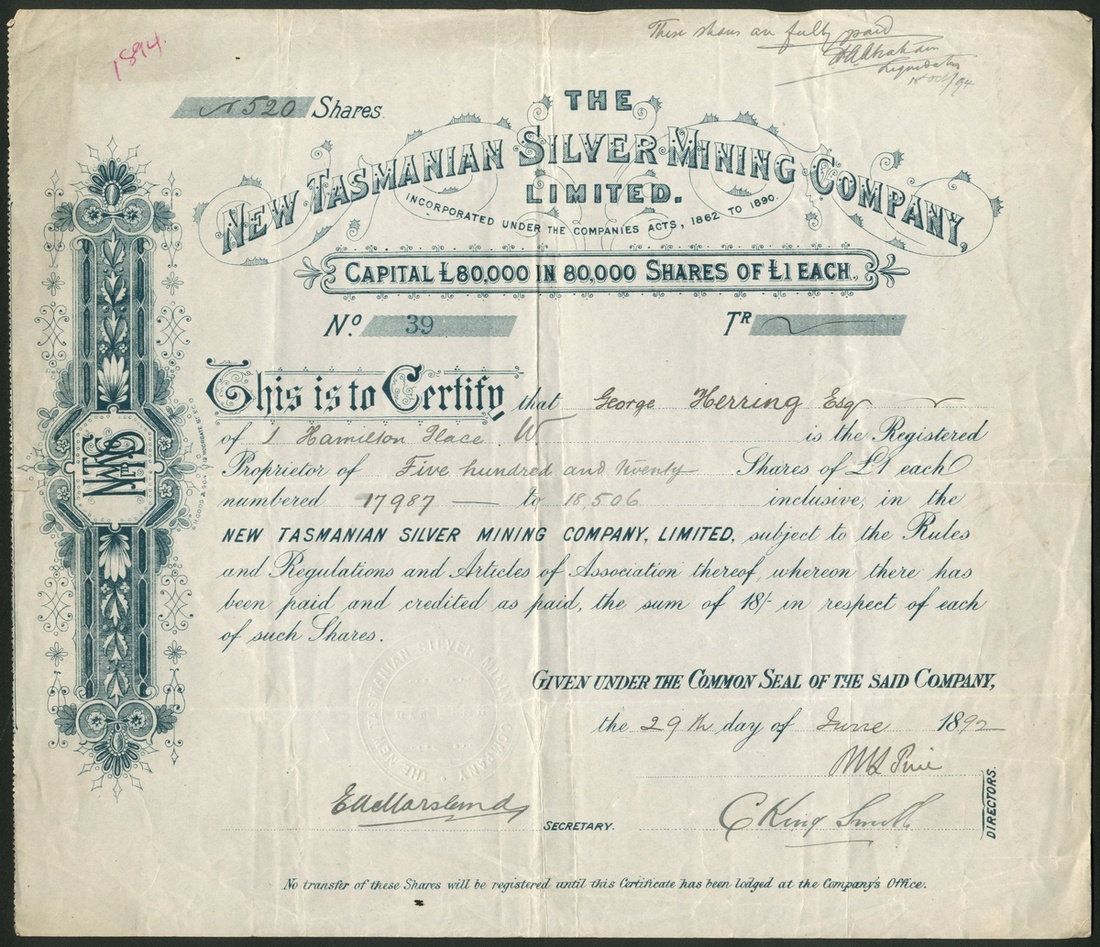 1894.
These shares are fully paid
Liquidator
Nº 520 Shares.
THE
NEW TASMANIAN SILVER MINING COMPANY,
LIMITED.
INCORPORATED UNDER THE COMPANIES ACTS, 1862 TO 1890.
CAPITAL £80,000 IN 80,000 SHARES OF £1 EACH.
Nº. 39 TR
This is to Certify that George Herring Esq
of 1 Hamilton Place W. is the Registered
Proprietor of Five hundred and Twenty Shares of £1 each
numbered 17987 — to 18,506 inclusive, in the
NEW TASMANIAN SILVER MINING COMPANY, LIMITED, subject to the Rules
and Regulations and Articles of Association thereof, whereon there has
been paid and credited as paid, the sum of 18/- in respect of each
of such Shares.
THE NEW TASMANIAN SILVER MINING COMPANY
GIVEN UNDER THE COMMON SEAL OF THE SAID COMPANY,
the 29th day of June 1892
SECRETARY.
C King Smith
DIRECTORS.
No transfer of these Shares will be registered until this Certificate has been lodged at the Company's Office.